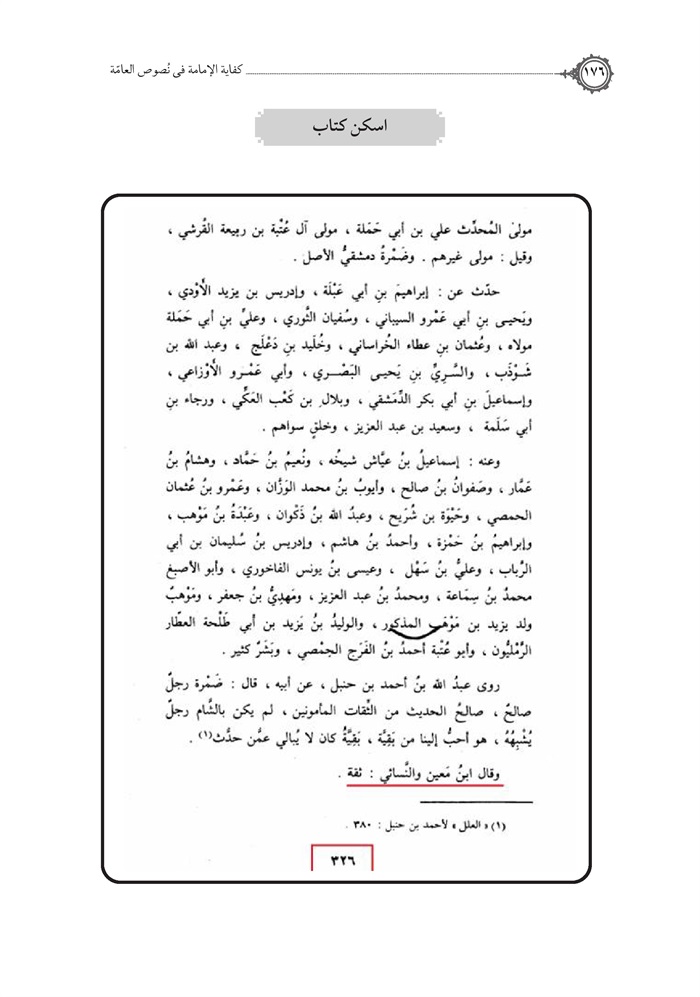 ١٧٦ كفاية الإمامة فى نُصوص العامّة
اسكن كتاب
مولى المُحدِّث علي بن أبي حَمَلة ، مولى آل عُتْبة بن ربيعة القُرشي ،
وقيل : مولى غيرهم . وضَمْرةُ دمشقيُّ الأصل .
حدّث عن : إبراهيمَ بنِ أبي عَبْلَة ، وإدريس بن يزيد الأَوْدي ،
ويَحيـى بنِ أبي عَمْرو السيباني ، وسُفيان الثَّوري ، وعليِّ بنِ أبي حَمَلة
مولاه ، وعُثمان بنِ عطاء الخُراساني ، وخُلَيد بنِ دَعْلَج ، وعبد الله بن
شَـوْذَب ، والسَّـرِيِّ بنِ يَحيـى البَصْـري ، وأبي عَمْـرو الأَوْزاعي ،
وإسماعيلَ بنِ أبي بكر الدِّمَشقي ، وبلالِ بن كَعْب العَكِّي ، ورجاء بنِ
أبي سَلَمة ، وسعيد بن عبد العزيز ، وخلقٍ سواهم .
وعنه : إسماعيلُ بنُ عيَّاش شيخُه ، ونُعيمُ بنُ حَمَّاد ، وهشامُ بنُ
عَمَّار ، وصَفوانُ بنُ صالح ، وأيوبُ بنُ محمد الوَزَّان ، وعَمْرو بنُ عُثمان
الحمصي ، وحَيْوَة بن شُرَيح ، وعبدُ الله بنُ ذَكْوان ، وعَبْدَةُ بنُ مَوْهب ،
وإبراهيمُ بنُ حَمْزة ، وأحمدُ بنُ هاشم ، وإدريس بنُ سُليمان بن أبي
الرُّباب ، وعليُّ بنُ سَهْل ، وعيسى بنُ يونس الفاخوري ، وأبو الأصبغ
محمدُ بنُ سِمَاعة ، ومحمدُ بنُ عبد العزيز ، ومَهديُّ بنُ جعفر ، ومَوْهبٌ
ولد يزيد بن مَوْهب المذكور ، والوليدُ بنُ يَزيد بن أبي طَلْحة العطّار
الرَّمْليُّون ، وأبو عُتْبة أحمدُ بنُ الفَرَج الحِمْصي ، وبَشَرٌ كثير .
روى عبدُ الله بنُ أحمد بن حنبل ، عن أبيه ، قال : ضَمْرة رجلٌ
صالحٌ ، صالحُ الحديث من الثِّقات المأمونين ، لم يكن بالشَّام رجلٌ
يُشْبِهُهُ ، هو أحبُّ إلينا من بَقِيَّة ، بَقِيَّةُ كان لا يُبالي عمَّن حدَّث(١) .
وقال ابنُ مَعين والنَّسائي : ثقة .
(١) « العلل » لأحمد بن حنبل : ٣٨٠ .
٣٢٦